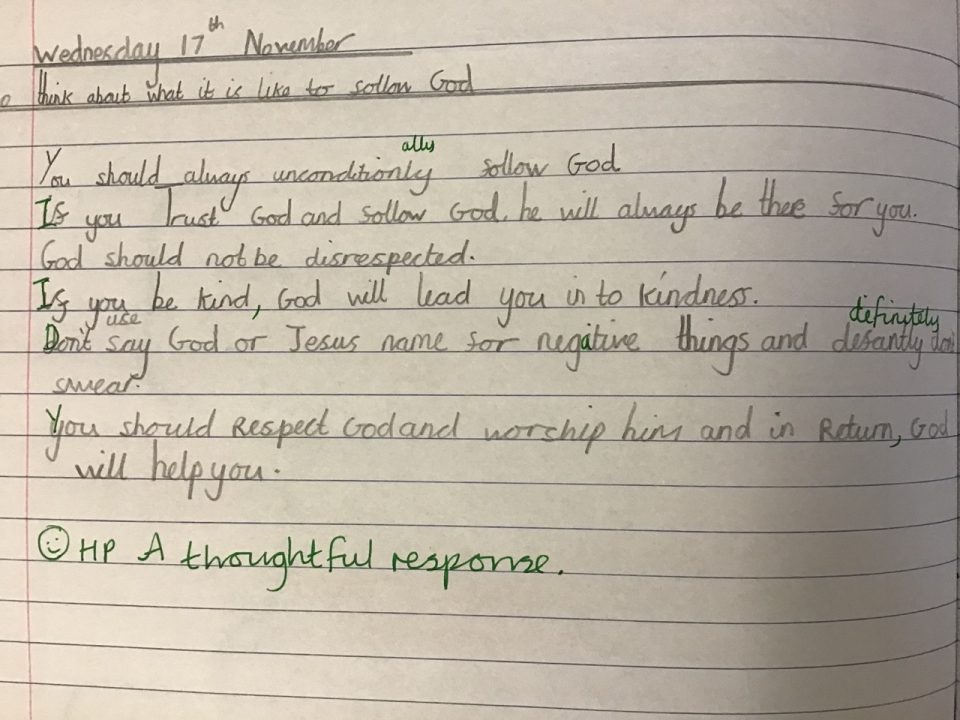 Wednesday 17th November
think about what it is like to follow God
ally
You should always unconditionly follow God
If you Trust God and follow God, he will always be there for you.
God should not be disrespected.
If you be kind, God will lead you in to kindness.
use definitely
Don't say God or Jesus name for negative things and defantly don't
swear.
You should Respect God and worship him and in Return, God
will help you.
☺ HP A thoughtful response.